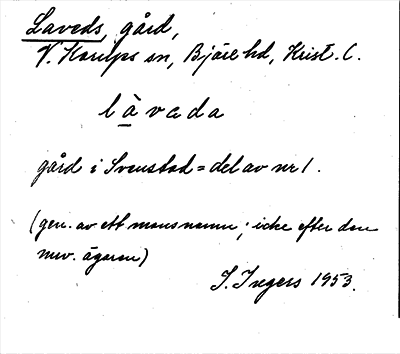 Laveds, gård,
V. Karups sn, Bjäre hd, Krist. L.
làvada
gård i Svenstad = del av nr 1.
(gen. av ett mansnamn; icke efter den
nuv. ägaren)
S. Ingers 1953.